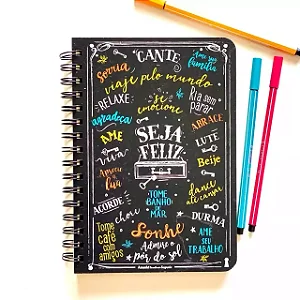 CANTE
Ame sua
família
Sorria
viaje pelo mundo
RELAXE
se
emocione
Ria sem
parar
agradeça
ABRACE
AME
SEJA
FELIZ
LUTE
viva
Beije
Aprecie a
lua
TOME
BANHO
DE
MAR
dance
até cansar
ACORDE
chore
DURMA
Tome
café
com
amigos
Sonhe
Admire o
pôr do sol
AME
SEU
TRABALHO